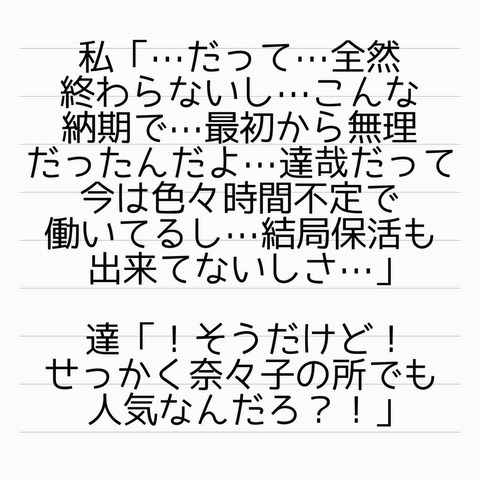 私「…だって…全然
終わらないし…こんな
納期で…最初から無理
だったんだよ…達哉だって
今は色々時間不定で
働いてるし…結局保活も
出来てないしさ…」
達「！そうだけど！
せっかく奈々子の所でも
人気なんだろ？！」